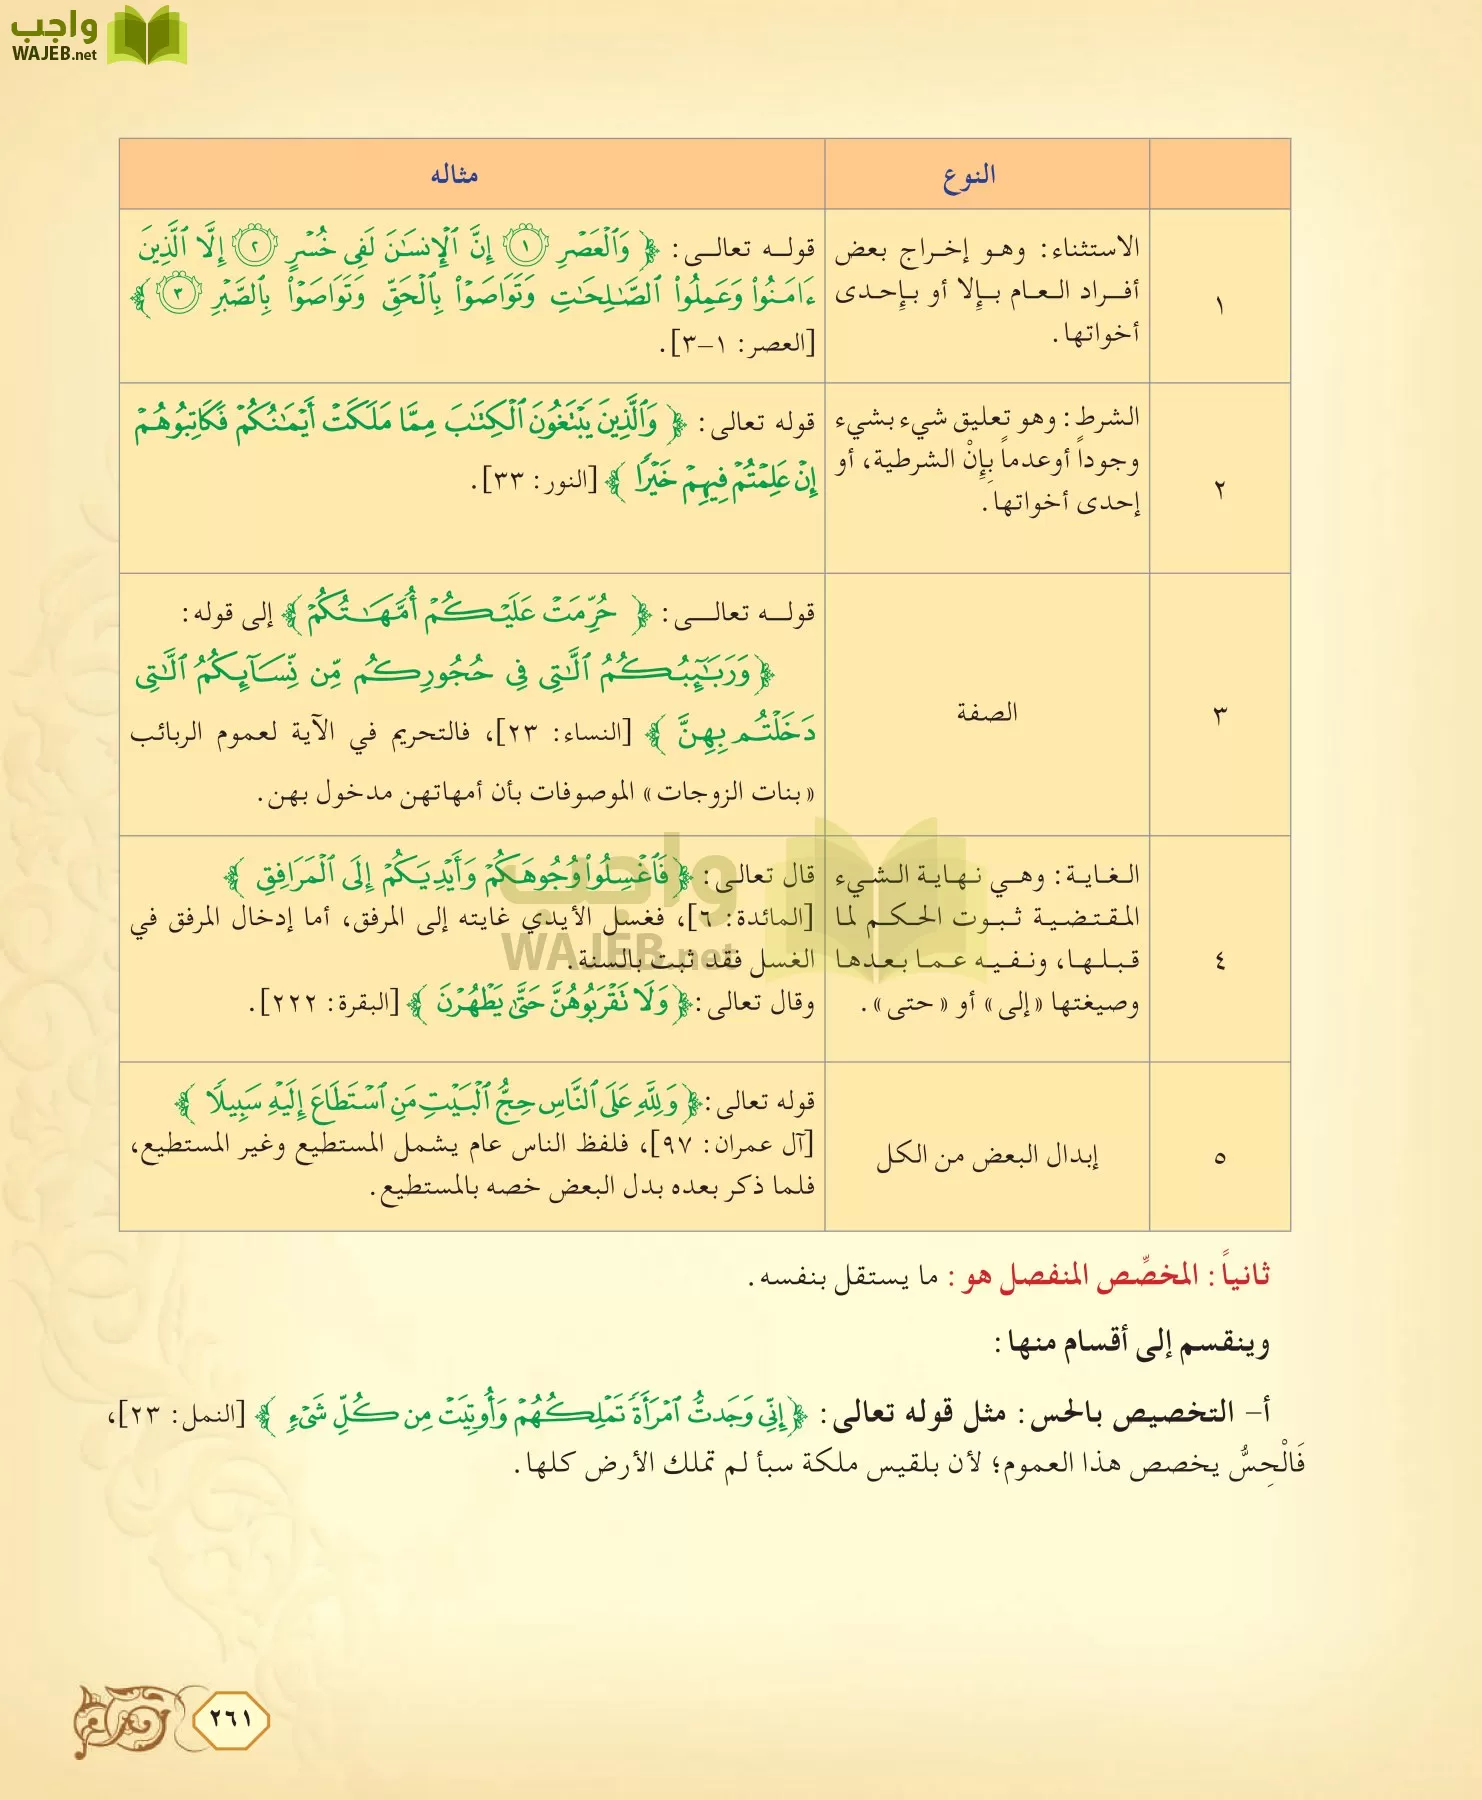 واجب
WAJEB.net
النوع
مثاله
١
الاستثناء: وهو إخراج بعض
أفراد العام بإلا أو بإحدى
أخواتها.
قوله تعالى: ﴿ وَٱلْعَصْرِ ١ إِنَّ ٱلْإِنسَٰنَ لَفِى خُسْرٍ ٢ إِلَّا ٱلَّذِينَ
ءَامَنُوا۟ وَعَمِلُوا۟ ٱلصَّٰلِحَٰتِ وَتَوَاصَوْا۟ بِٱلْحَقِّ وَتَوَاصَوْا۟ بِٱلصَّبْرِ ٣ ﴾
[العصر: ١-٣].
٢
الشرط: وهو تعليق شيء بشيء
وجوداً أوعدماً بِإِنْ الشرطية، أو
إحدى أخواتها.
قوله تعالى: ﴿ وَٱلَّذِينَ يَبْتَغُونَ ٱلْكِتَٰبَ مِمَّا مَلَكَتْ أَيْمَٰنُكُمْ فَكَاتِبُوهُمْ
إِنْ عَلِمْتُمْ فِيهِمْ خَيْرًا ﴾ [النور: ٣٣].
٣
الصفة
قوله تعالى: ﴿ حُرِّمَتْ عَلَيْكُمْ أُمَّهَٰتُكُمْ ﴾ إلى قوله:
﴿وَرَبَٰٓئِبُكُمُ ٱلَّٰتِى فِى حُجُورِكُم مِّن نِّسَآئِكُمُ ٱلَّٰتِى
دَخَلْتُم بِهِنَّ ﴾ [النساء: ٢٣]، فالتحريم في الآية لعموم الربائب
«بنات الزوجات» الموصوفات بأن أمهاتهن مدخول بهن.
٤
الغاية: وهي نهاية الشيء
المقتضية ثبوت الحكم لما
قبلها، ونفيه عما بعدها
وصيغتها «إلى» أو «حتى».
قال تعالى: ﴿فَٱغْسِلُوا۟ وُجُوهَكُمْ وَأَيْدِيَكُمْ إِلَى ٱلْمَرَافِقِ ﴾
[المائدة: ٦]، فغسل الأيدي غايته إلى المرفق، أما إدخال المرفق في
الغسل فقد ثبت بالسنة.
وقال تعالى:﴿وَلَا تَقْرَبُوهُنَّ حَتَّىٰ يَطْهُرْنَ ﴾ [البقرة: ٢٢٢].
٥
إبدال البعض من الكل
قوله تعالى:﴿وَلِلَّهِ عَلَى ٱلنَّاسِ حِجُّ ٱلْبَيْتِ مَنِ ٱسْتَطَاعَ إِلَيْهِ سَبِيلًا ﴾
[آل عمران: ٩٧]، فلفظ الناس عام يشمل المستطيع وغير المستطيع،
فلما ذكر بعده بدل البعض خصه بالمستطيع.
واجب
WAJEB.net
ثانياً: المخصِّص المنفصل هو: ما يستقل بنفسه.
وينقسم إلى أقسام منها:
أ- التخصيص بالحس: مثل قوله تعالى: ﴿إِنِّى وَجَدتُّ ٱمْرَأَةً تَمْلِكُهُمْ وَأُوتِيَتْ مِن كُلِّ شَىْءٍ ﴾ [النمل: ٢٣]،
فَالْحِسُّ يخصص هذا العموم؛ لأن بلقيس ملكة سبأ لم تملك الأرض كلها.
٢٦١